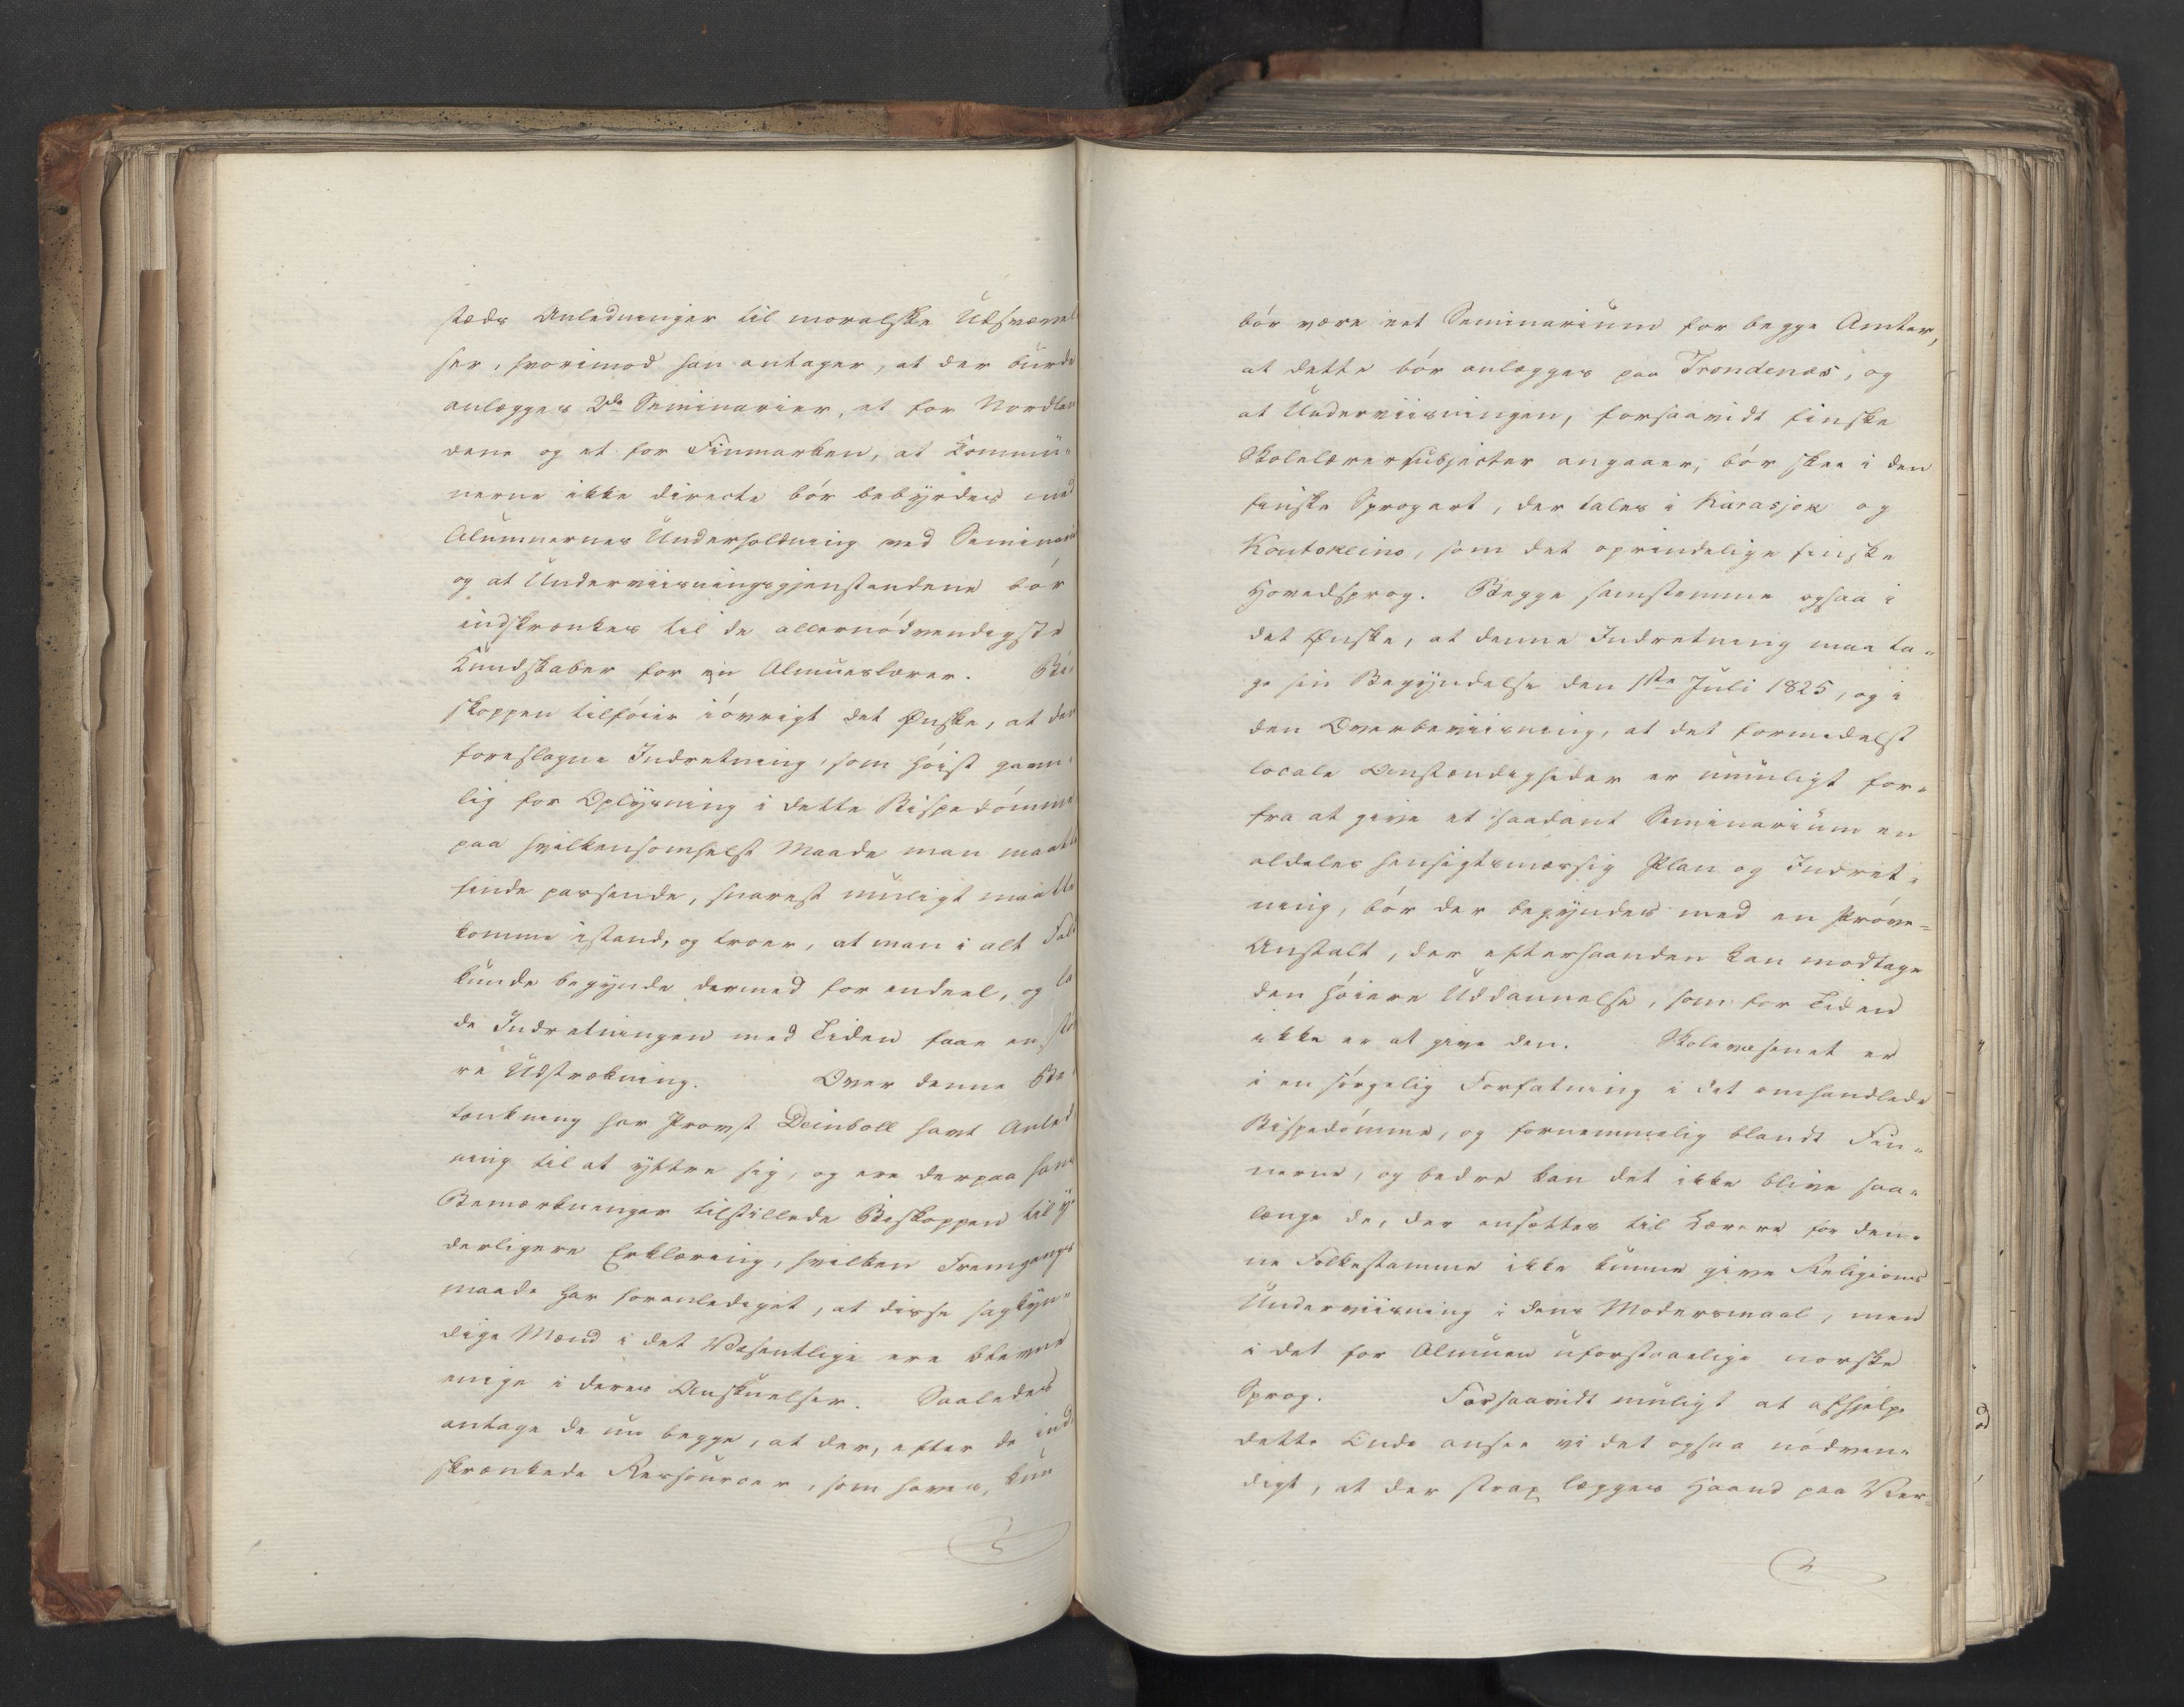 stæds Anledninger til moralske Udsvævel
ser, hvorimod han antager, at der burde
anlægges 2de Seminarier, et for Nordlan
dene og et for Finmarken, at Kommu-
nerne ikke directe bör bebyrdes med
Alumnernes Underholdning ved Seminari
og at Underviisningsgjenstandene bör
indskrænkes til de allernödvendigste
Kundskaber for en Almueslærer. Bi-
skoppen tilföier iövrigt det Ønske, at den
foreslagne Indretning, som höist gavn-
lig for Oplysning i dette Bispedömme
paa hvilkensomhelst Maade man maatte
finde passende, snarest muligt maatte
komme istand, og troer, at man i alt Fald
kunde begynde dermed for endeel, og la
de Indretningen med Tiden faae en stö
re Udstrækning. Over denne Be-
tænkning har Provst Deinboll havt Anled
ning til at yttre sig, og ere derpaa hans
Bemærkninger tilstillede Biskoppen til y-
derligere Erklæring, hvilken Fremgangs
maade har foranlediget, at disse sagkyn-
dige Mænd i det Væsentlige ere blevne
enige i deres Anskuelser. Saaledes
antage de nu begge, at der, efter de ind-
skrænkede Ressourcer, som haves, kun
bör være eet Seminarium for begge Amter,
at dette bör anlægges paa Trondenæs, og
at Underviisningen, forsaavidt finske
Skolelærersubjecter angaaer, bör skee i den
finske Sprogart, der tales i Karasjok og
Koutokeino, som det oprindelige finske
Hovedsprog. Begge samstemme ogsaa i
det Ønske, at denne Indretning maa ta-
ge sin Begyndelse den 1ste Juli 1825, og i
den Overbeviisning, at det formedelst
locale Omstændigheder er umuligt for-
fra at give et saadant Seminarium en
aldeles hensigtsmæssig Plan og Indret-
ning, bör der begyndes med en Pröve-
Anstalt, der efterhaanden kan modtage
den höiere Uddannelse, som for Tiden
ikke er at give den. Skolevæsenet er
i en sörgelig Forfatning i det omhandlede
Bispedömme, og fornemmelig blandt Fin-
nerne, og bedre kan det ikke blive saa-
længe de, der ansættes til Lærere for den-
ne Folkestamme ikke kunne give Religions
Underviisning i dens Modersmaal, men
i det for Almuen uforstaaelige norske
Sprog. Forsaavidt muligt at afhjelpe
dette Onde ansee vi det ogsaa nödven-
digt, at der strax lægges Haand paa Vær-